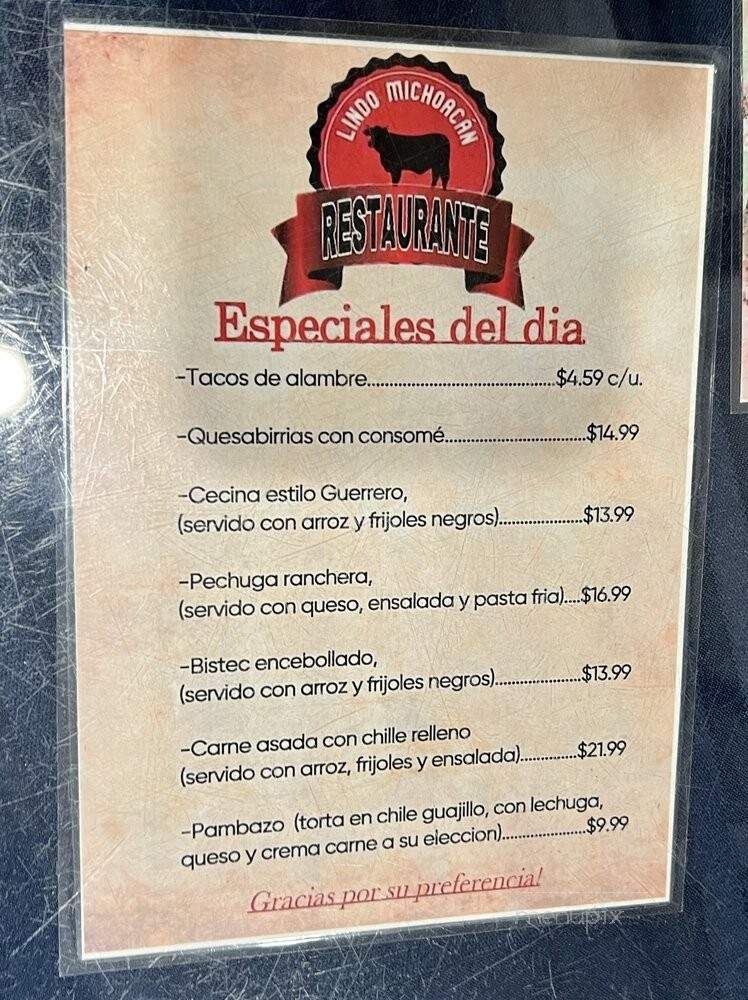 LINDO MICHOACÁN
RESTAURANTE
Especiales del dia
-Tacos de alambre.........................................$4.59 c/u.
-Quesabirrias con consomé...............................$14.99
-Cecina estilo Guerrero,
(servido con arroz y frijoles negros)....................$13.99
-Pechuga ranchera,
(servido con queso, ensalada y pasta fria)....$16.99
-Bistec encebollado,
(servido con arroz y frijoles negros).....................$13.99
-Carne asada con chille relleno
(servido con arroz, frijoles y ensalada)..............$21.99
-Pambazo (torta en chile guajillo, con lechuga,
queso y crema carne a su eleccion).....................$9.99
Gracias por su preferencia!
menupix